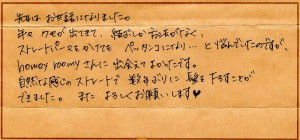 先日は お世話になりました。
年々 クセが 出てきて、結ぶしか 方法がなく、
ストレートパーマをかけても ペッタンコになり… と悩んでいたのですが、
homey roomyさんに 出会えて よかったです。
自然な感じの ストレートで 数年ぶりに 髪を下ろすことが
できました。 また よろしくお願いします♥